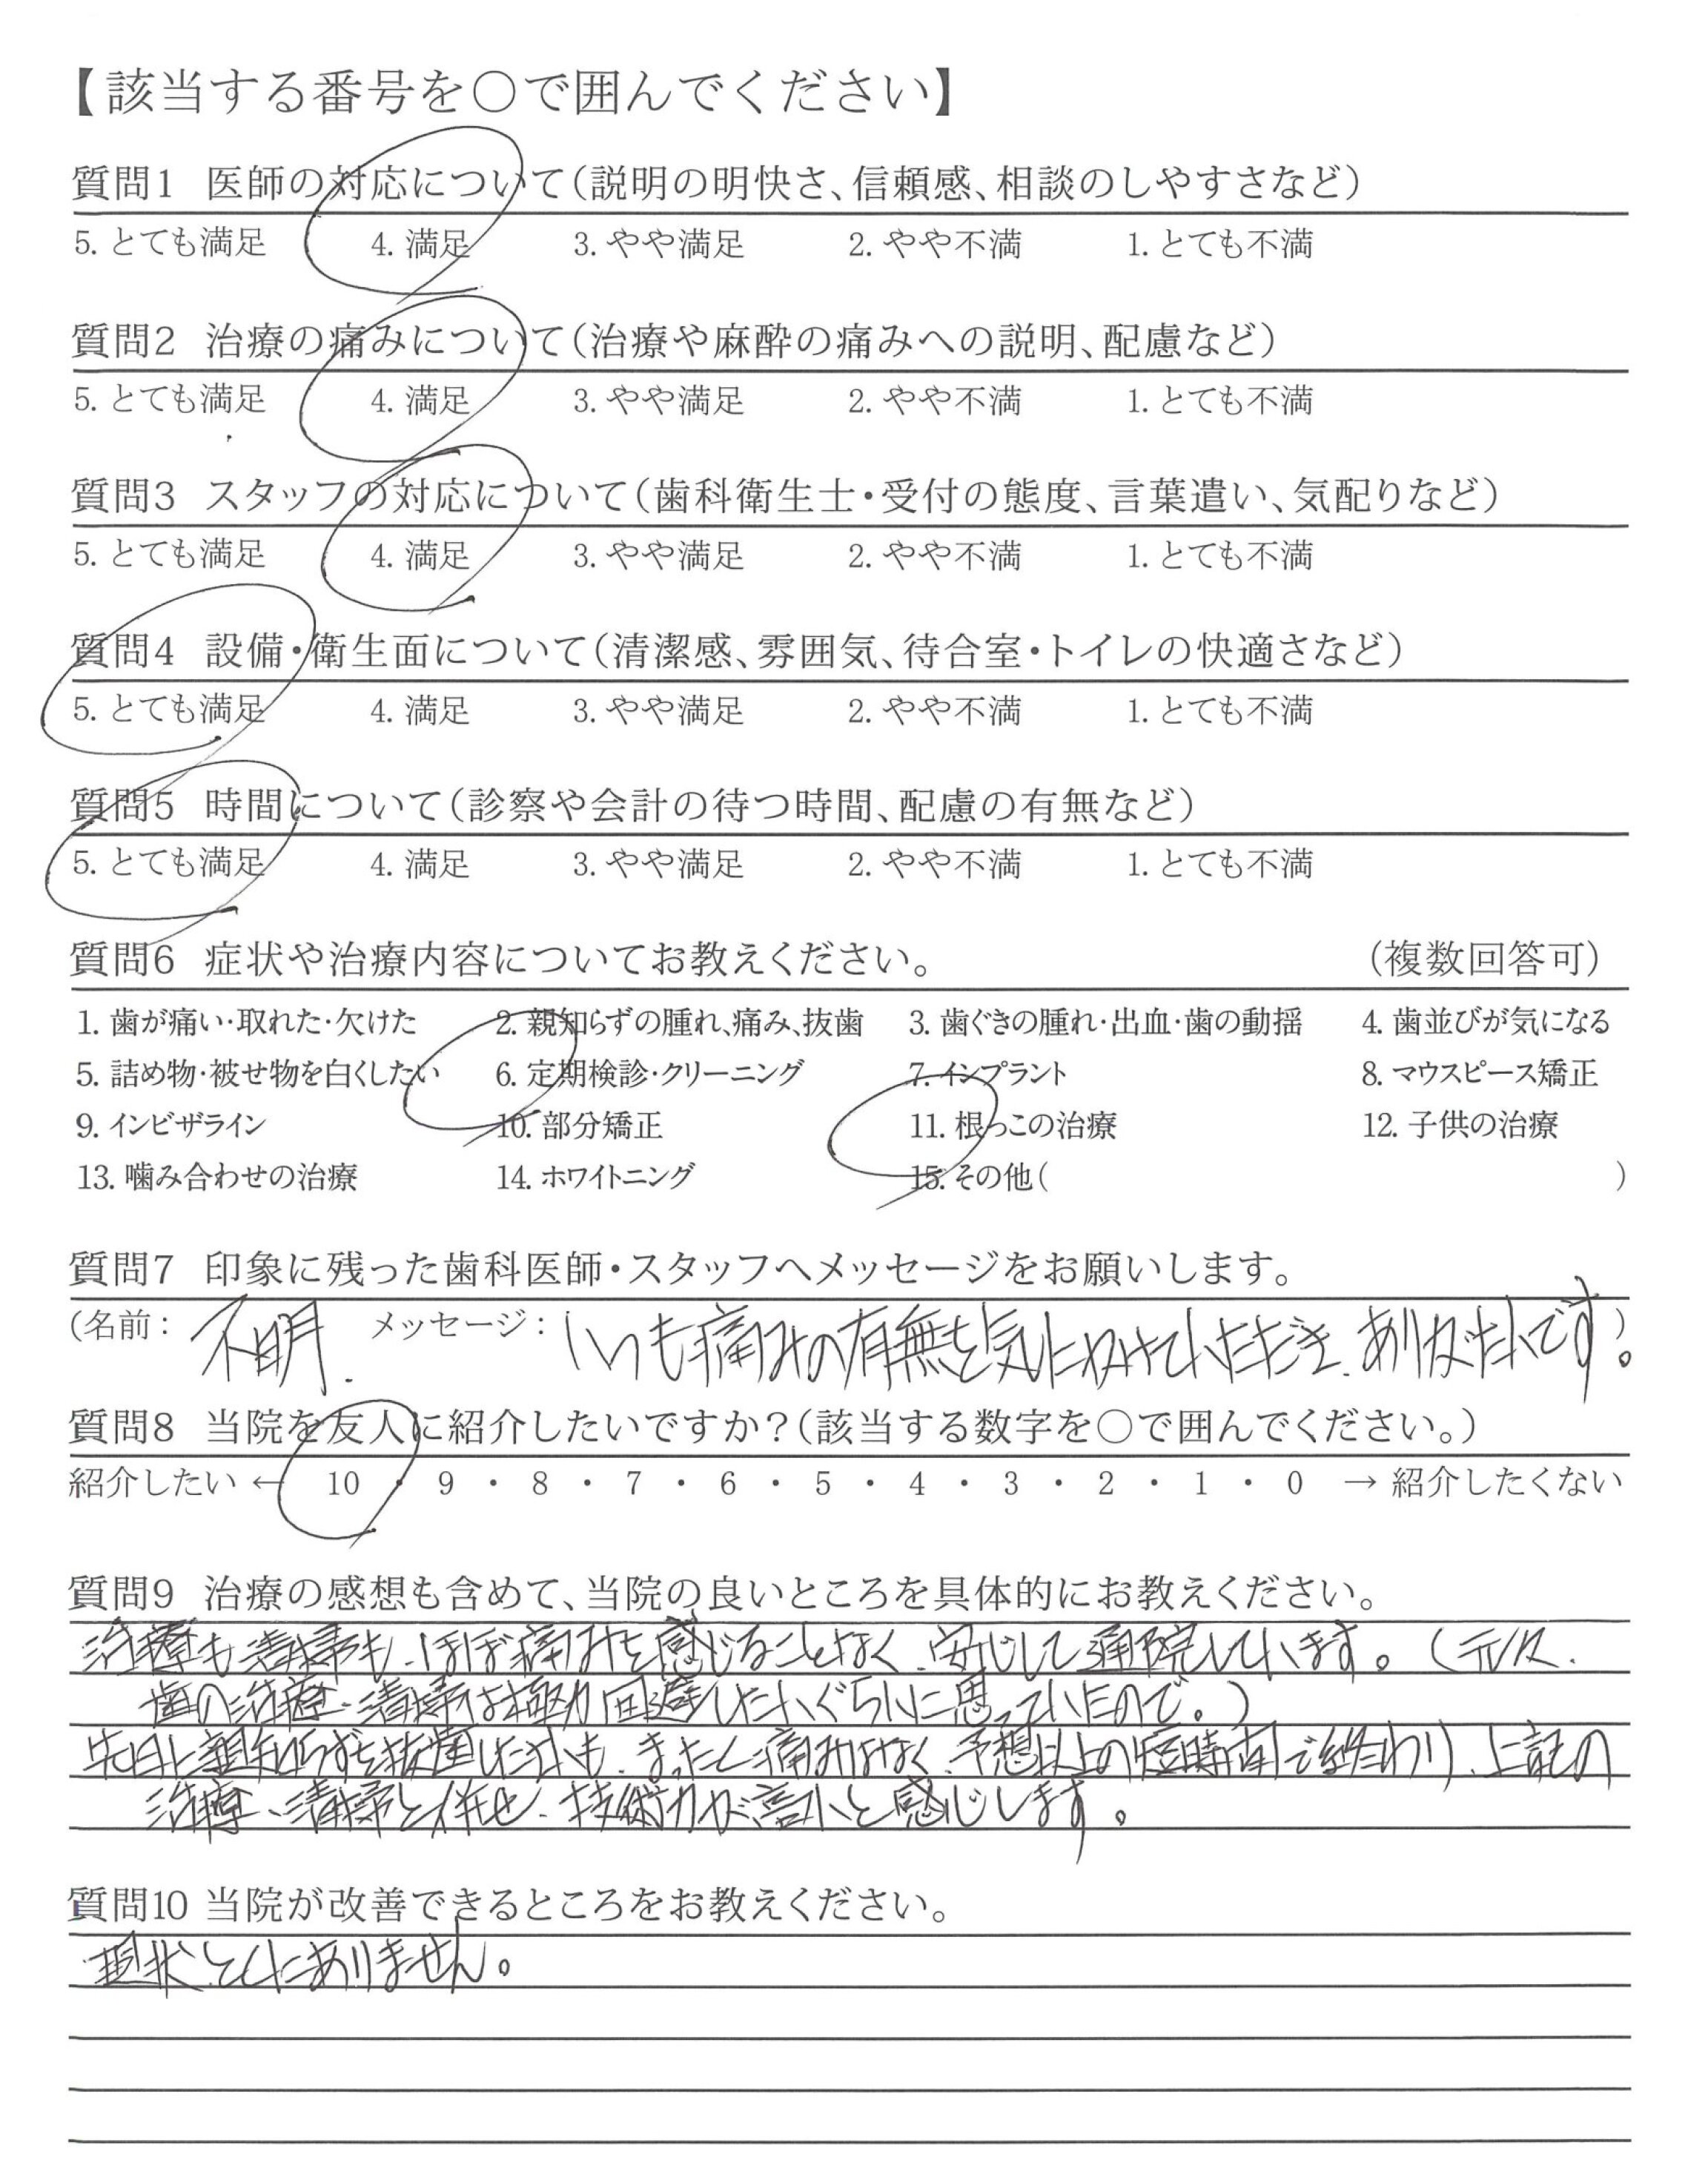 【該当する番号を○で囲んでください】
質問1 医師の対応について（説明の明快さ、信頼感、相談のしやすさなど）
5. とても満足 4. 満足 3. やや満足 2. やや不満 1. とても不満
質問2 治療の痛みについて（治療や麻酔の痛みへの説明、配慮など）
5. とても満足 4. 満足 3. やや満足 2. やや不満 1. とても不満
質問3 スタッフの対応について（歯科衛生士・受付の態度、言葉遣い、気配りなど）
5. とても満足 4. 満足 3. やや満足 2. やや不満 1. とても不満
質問4 設備・衛生面について（清潔感、雰囲気、待合室・トイレの快適さなど）
5. とても満足 4. 満足 3. やや満足 2. やや不満 1. とても不満
質問5 時間について（診察や会計の待つ時間、配慮の有無など）
5. とても満足 4. 満足 3. やや満足 2. やや不満 1. とても不満
質問6 症状や治療内容についてお教えください。 （複数回答可）
1. 歯が痛い・取れた・欠けた 2. 親知らずの腫れ、痛み、抜歯 3. 歯ぐきの腫れ・出血・歯の動揺 4. 歯並びが気になる
5. 詰め物・被せ物を白くしたい 6. 定期検診・クリーニング 7. インプラント 8. マウスピース矯正
9. インビザライン 10. 部分矯正 11. 根っこの治療 12. 子供の治療
13. 噛み合わせの治療 14. ホワイトニング 15. その他（ ）
質問7 印象に残った歯科医師・スタッフへメッセージをお願いします。
（名前： 不明. メッセージ：いつも痛みの有無を気にかけていただき、ありがたいです。）
質問8 当院を友人に紹介したいですか？（該当する数字を○で囲んでください。）
紹介したい ← 10 ・ 9 ・ 8 ・ 7 ・ 6 ・ 5 ・ 4 ・ 3 ・ 2 ・ 1 ・ 0 → 紹介したくない
質問9 治療の感想も含めて、当院の良いところを具体的にお教えください。
治療も清掃も、ほぼ痛みを感じることなく、安心して通院しています。（元々、
歯の治療、清掃は極力回避したいぐらいに思っていたので。）
先日に親知らずを抜歯した以も、まったく痛みはなく、予想以上の短時間で終わり、上記の
治療、清掃と併せ、技術力が高いと感じします。
質問10 当院が改善できるところをお教えください。
現状とくにありません。